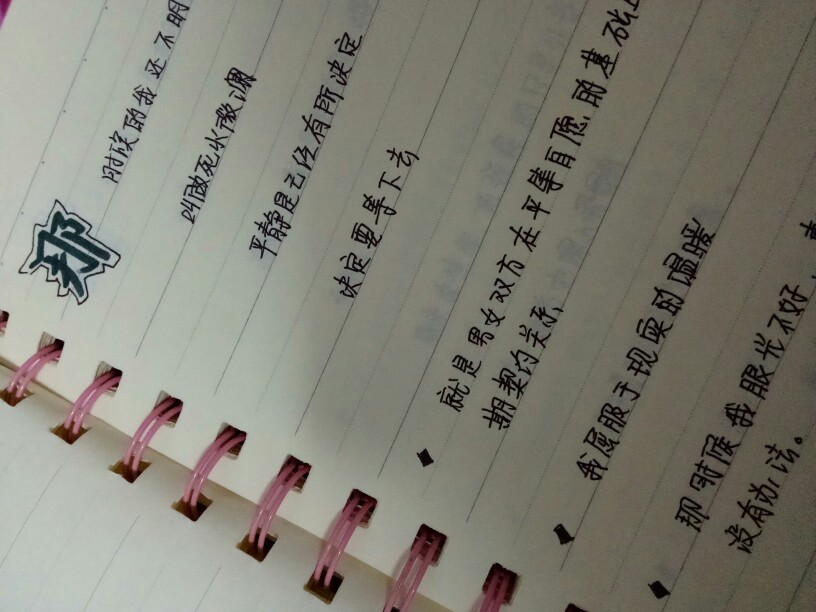 那
时候的我还不明
叫做死火微澜
平静是已经有所决定
决定要等下去
就是男女双方在平等自愿的基础上
期契约关系,
我屈服于现实的温暖
那时候我眼光不好,
没有办法。